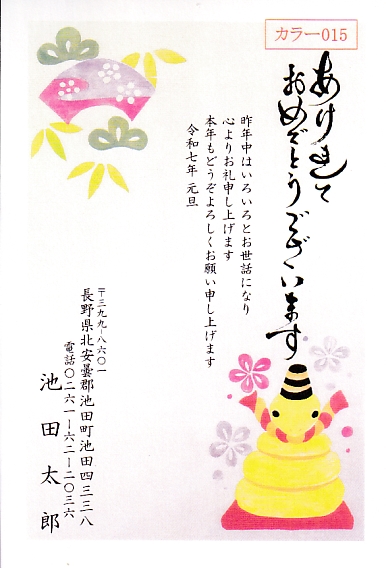 カラー015
あけまして
おめでとうございます
昨年中はいろいろとお世話になり
心よりお礼申し上げます
本年もどうぞよろしくお願い申し上げます
令和七年 元旦
〒三九九-八六〇一
長野県北安曇郡池田町池田四三三八
電話〇二六一-六二-二〇三六
池田太郎